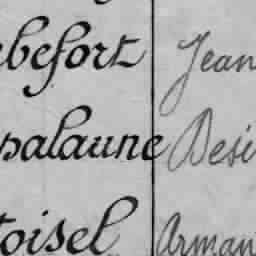 ebefort Jean
palaune Desi
toisel Arman